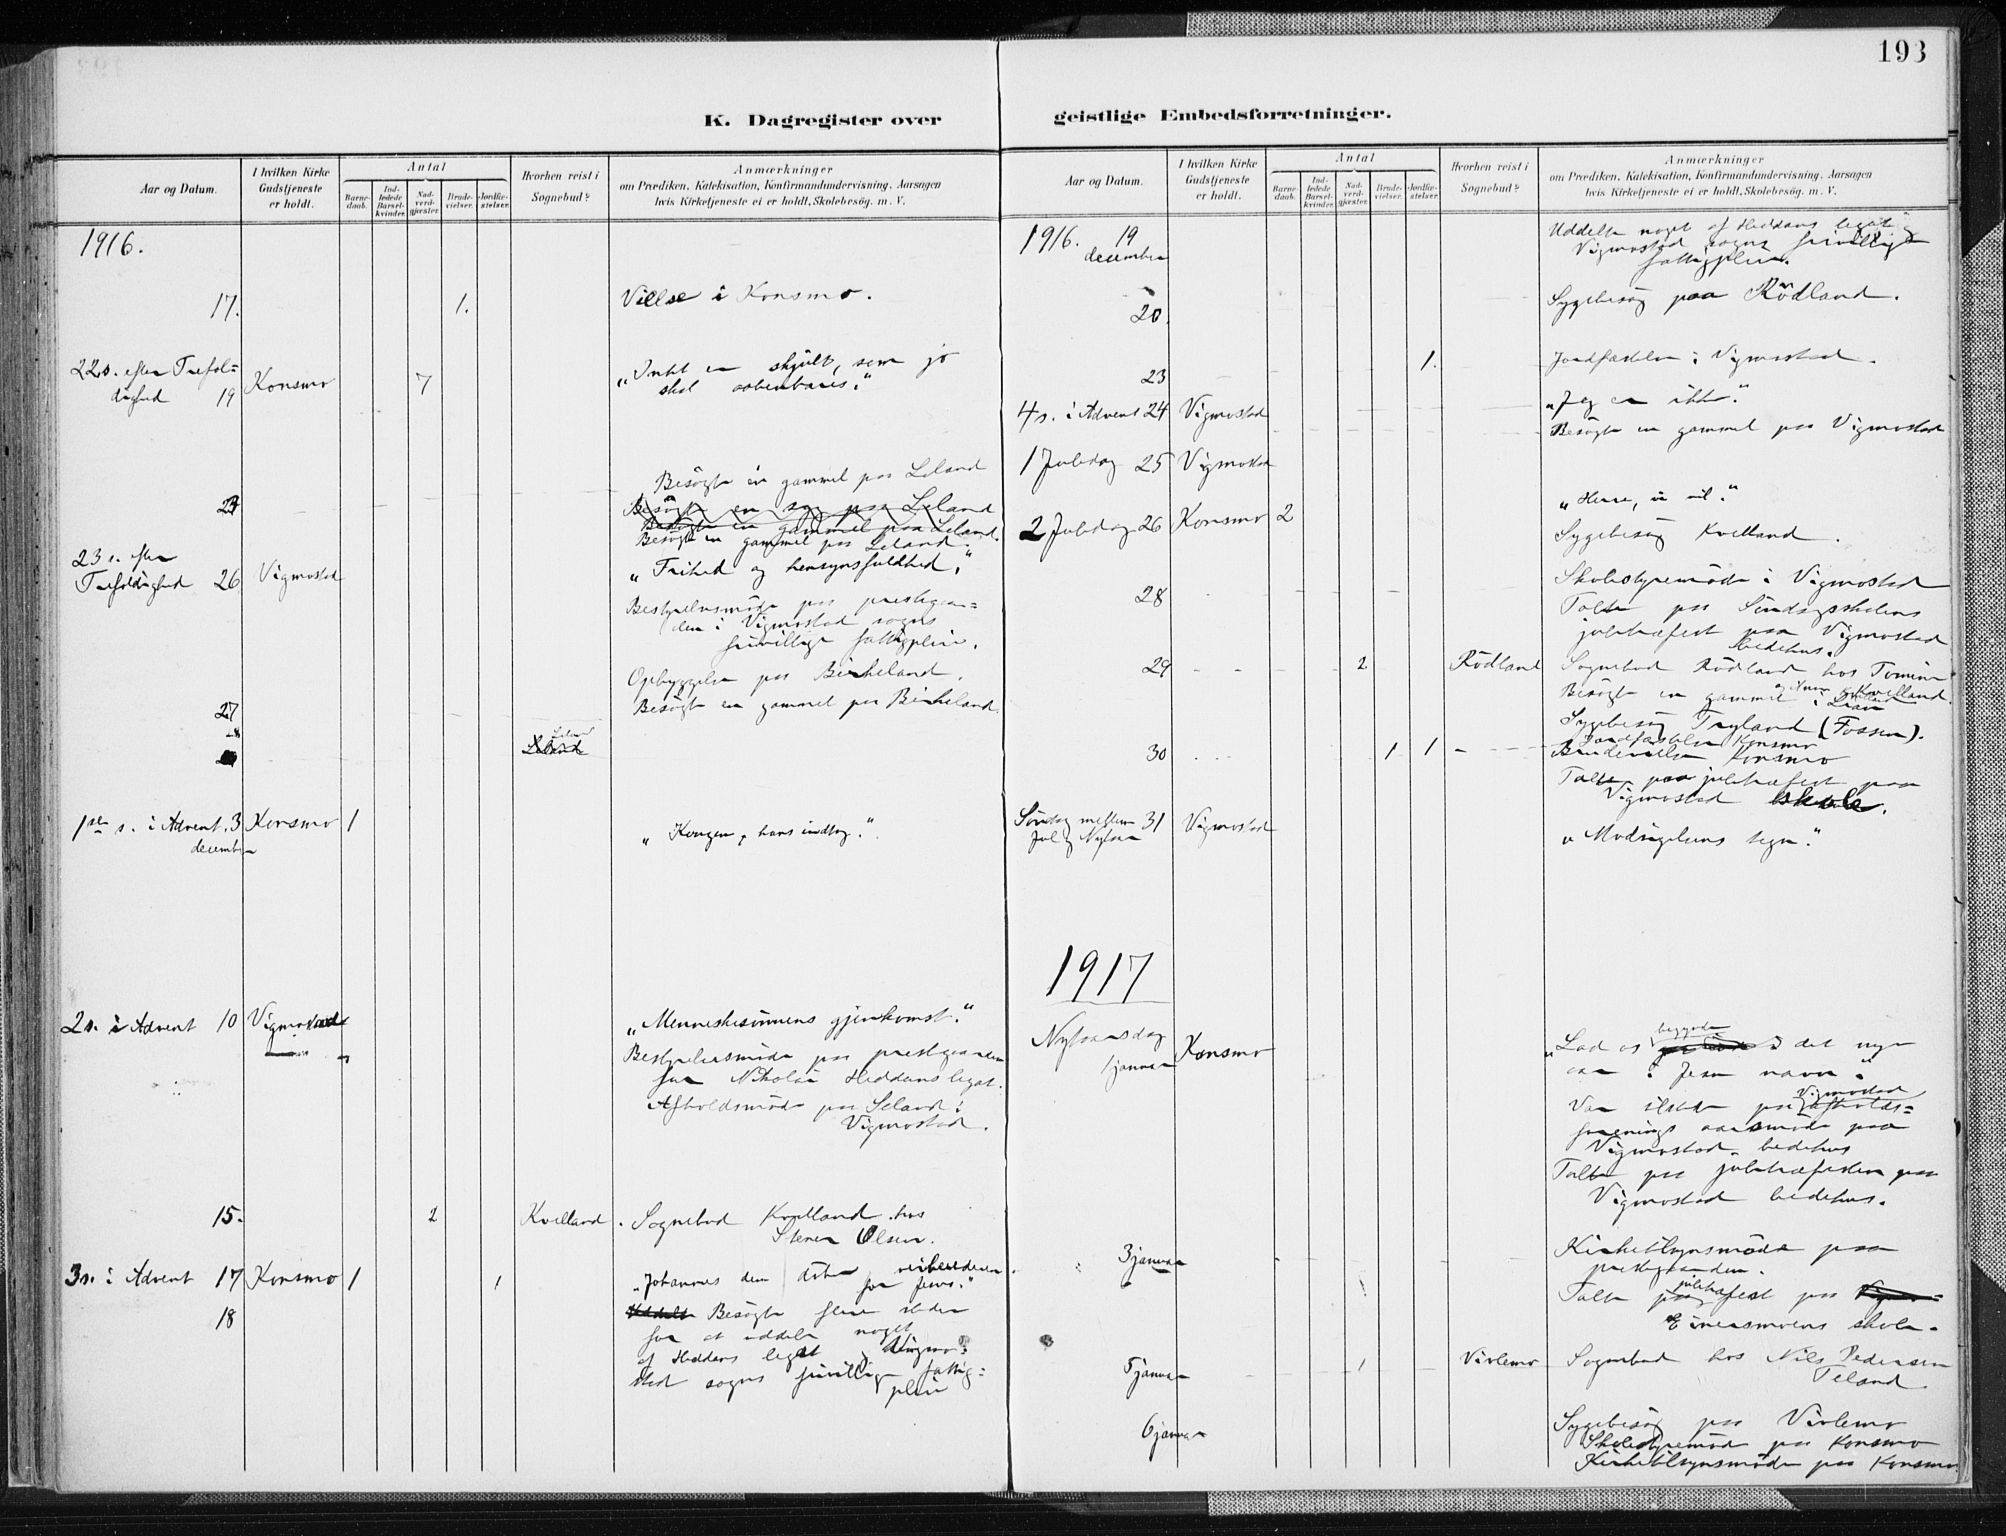 193
K. Dagregister over
geistlige Embedsforretninger.
Aar og Datum.
I hvilken Kirke
Gudstjeneste
er holdt.
Antal
Barne-
daab.
Ind-
ledede
Barsel-
kvinder.
Nad-
verd-
gjæster.
Brude-
vielser.
Jordfæ-
stelser.
Hvorhen reist i
Sognebud?
Anmærkninger
om Prædiken, Katekisation, Konfirmandundervisning, Aarsagen
hvis Kirketjeneste ei er holdt, Skolebesøg. m. V.
1916.
17. 1. Vielse i Konsmo.
22s. efter Trefol=
dighed 19 Konsmo 7 „Intet er skjult, som jo
skal aabenbares."
Besögte en gammel paa Leland
Besögte en syg paa Leland
Besögte en gammel paa Leland.
Besögte en gammel paa Leland.
23 s. efter
Trefoldighed 26 Vigmostad „Frihed og hensynsfuldhed."
Bestyrelsesmöde paa prestegaar=
den i Vigmostad sogns
frivillige fattigpleie.
Opbyggelse paa Birkeland.
27 Besögte en gammel paa Birkeland.
28 Leland
1ste s. i Advent. 3 Konsmo 1 „Kongen, hans indtog."
december
2s. i Advent 10 Vigmostad „Menneskesönnens gjenkomst."
Bestyrelsesmöde paa prestegaarden
for Nikolai Heddans legat.
Afholdsmöde paa Leland i
Vigmostad.
15. 2 Kvelland. Sognebud Kvelland hos
Olsen.
3s. i Advent 17 Konsmo 1 1 „Johannes den döber for Jesus."
18 Uddelte Besögte flere steder
for at uddele noget
af Heddans legat Vigmo=
stad sogns frivillige fattig=
pleie
Aar og Datum.
I hvilken Kirke
Gudstjeneste
er holdt.
Antal
Barne-
daab.
Ind-
ledede
Barsel-
kvinder.
Nad-
verd-
gjæster.
Brude-
vielser.
Jordfæ-
stelser.
Hvorhen reist i
Sognebud?
Anmærkninger
om Prædiken, Katekisation, Konfirmandundervisning, Aarsagen
hvis Kirketjeneste ei er holdt, Skolebesög. m. V.
1916. 19 Uddelte noget af Heddans legat og
december Vigmostad sogns frivillige
fattigpleie.
20. Sygebesög paa Rödland.
23 1. Jordfæstelse i Vigmostad.
4s. i Advent 24 Vigmostad „Jeg er ikke."
Besögte en gammel paa Vigmostad
1 Juledag 25 Vigmostad
„Herre, vi vil."
2 Juledag 26 Konsmo 2 Sygebesög Kvelland.
28 Skolestyremöde i Vigmostad
Talte paa Söndagsskolens
juletræfest paa Vigmostad
bedehus.
29 2 Rödland Sognebud Rödland hos
Besögte en gammel i
Sygebesög Tryland (Fossen).
Jordfæstelse Konsmo
30 1 1 Brudevielse Konsmo
Talte paa juletræfest paa
Vigmostad skole.
Söndag mellem 31 Vigmostad „Modsigelsens tegn."
Jul og Nytaar
1917
Nytaarsdag Konsmo „Lad os begynde det nye
1 januar aar i Jesu navn."
Var tilstede paa Vigmostad afholds=
forenings aarsmöde paa
Vigmostad bedehus
Talte paa juletræfesten paa
Vigmostad bedehus.
3 januar Kirketilsynsmöde paa
prestegaarden.
Talte paa juletræfest paa
skole.
5 januar 1 Vivlemo Sognebud hos Nils Pedersen
6 januar Sygebesög paa Vivlemo
Skolestyremöde paa Konsmo
Kirketilsynsmöde paa Konsmo